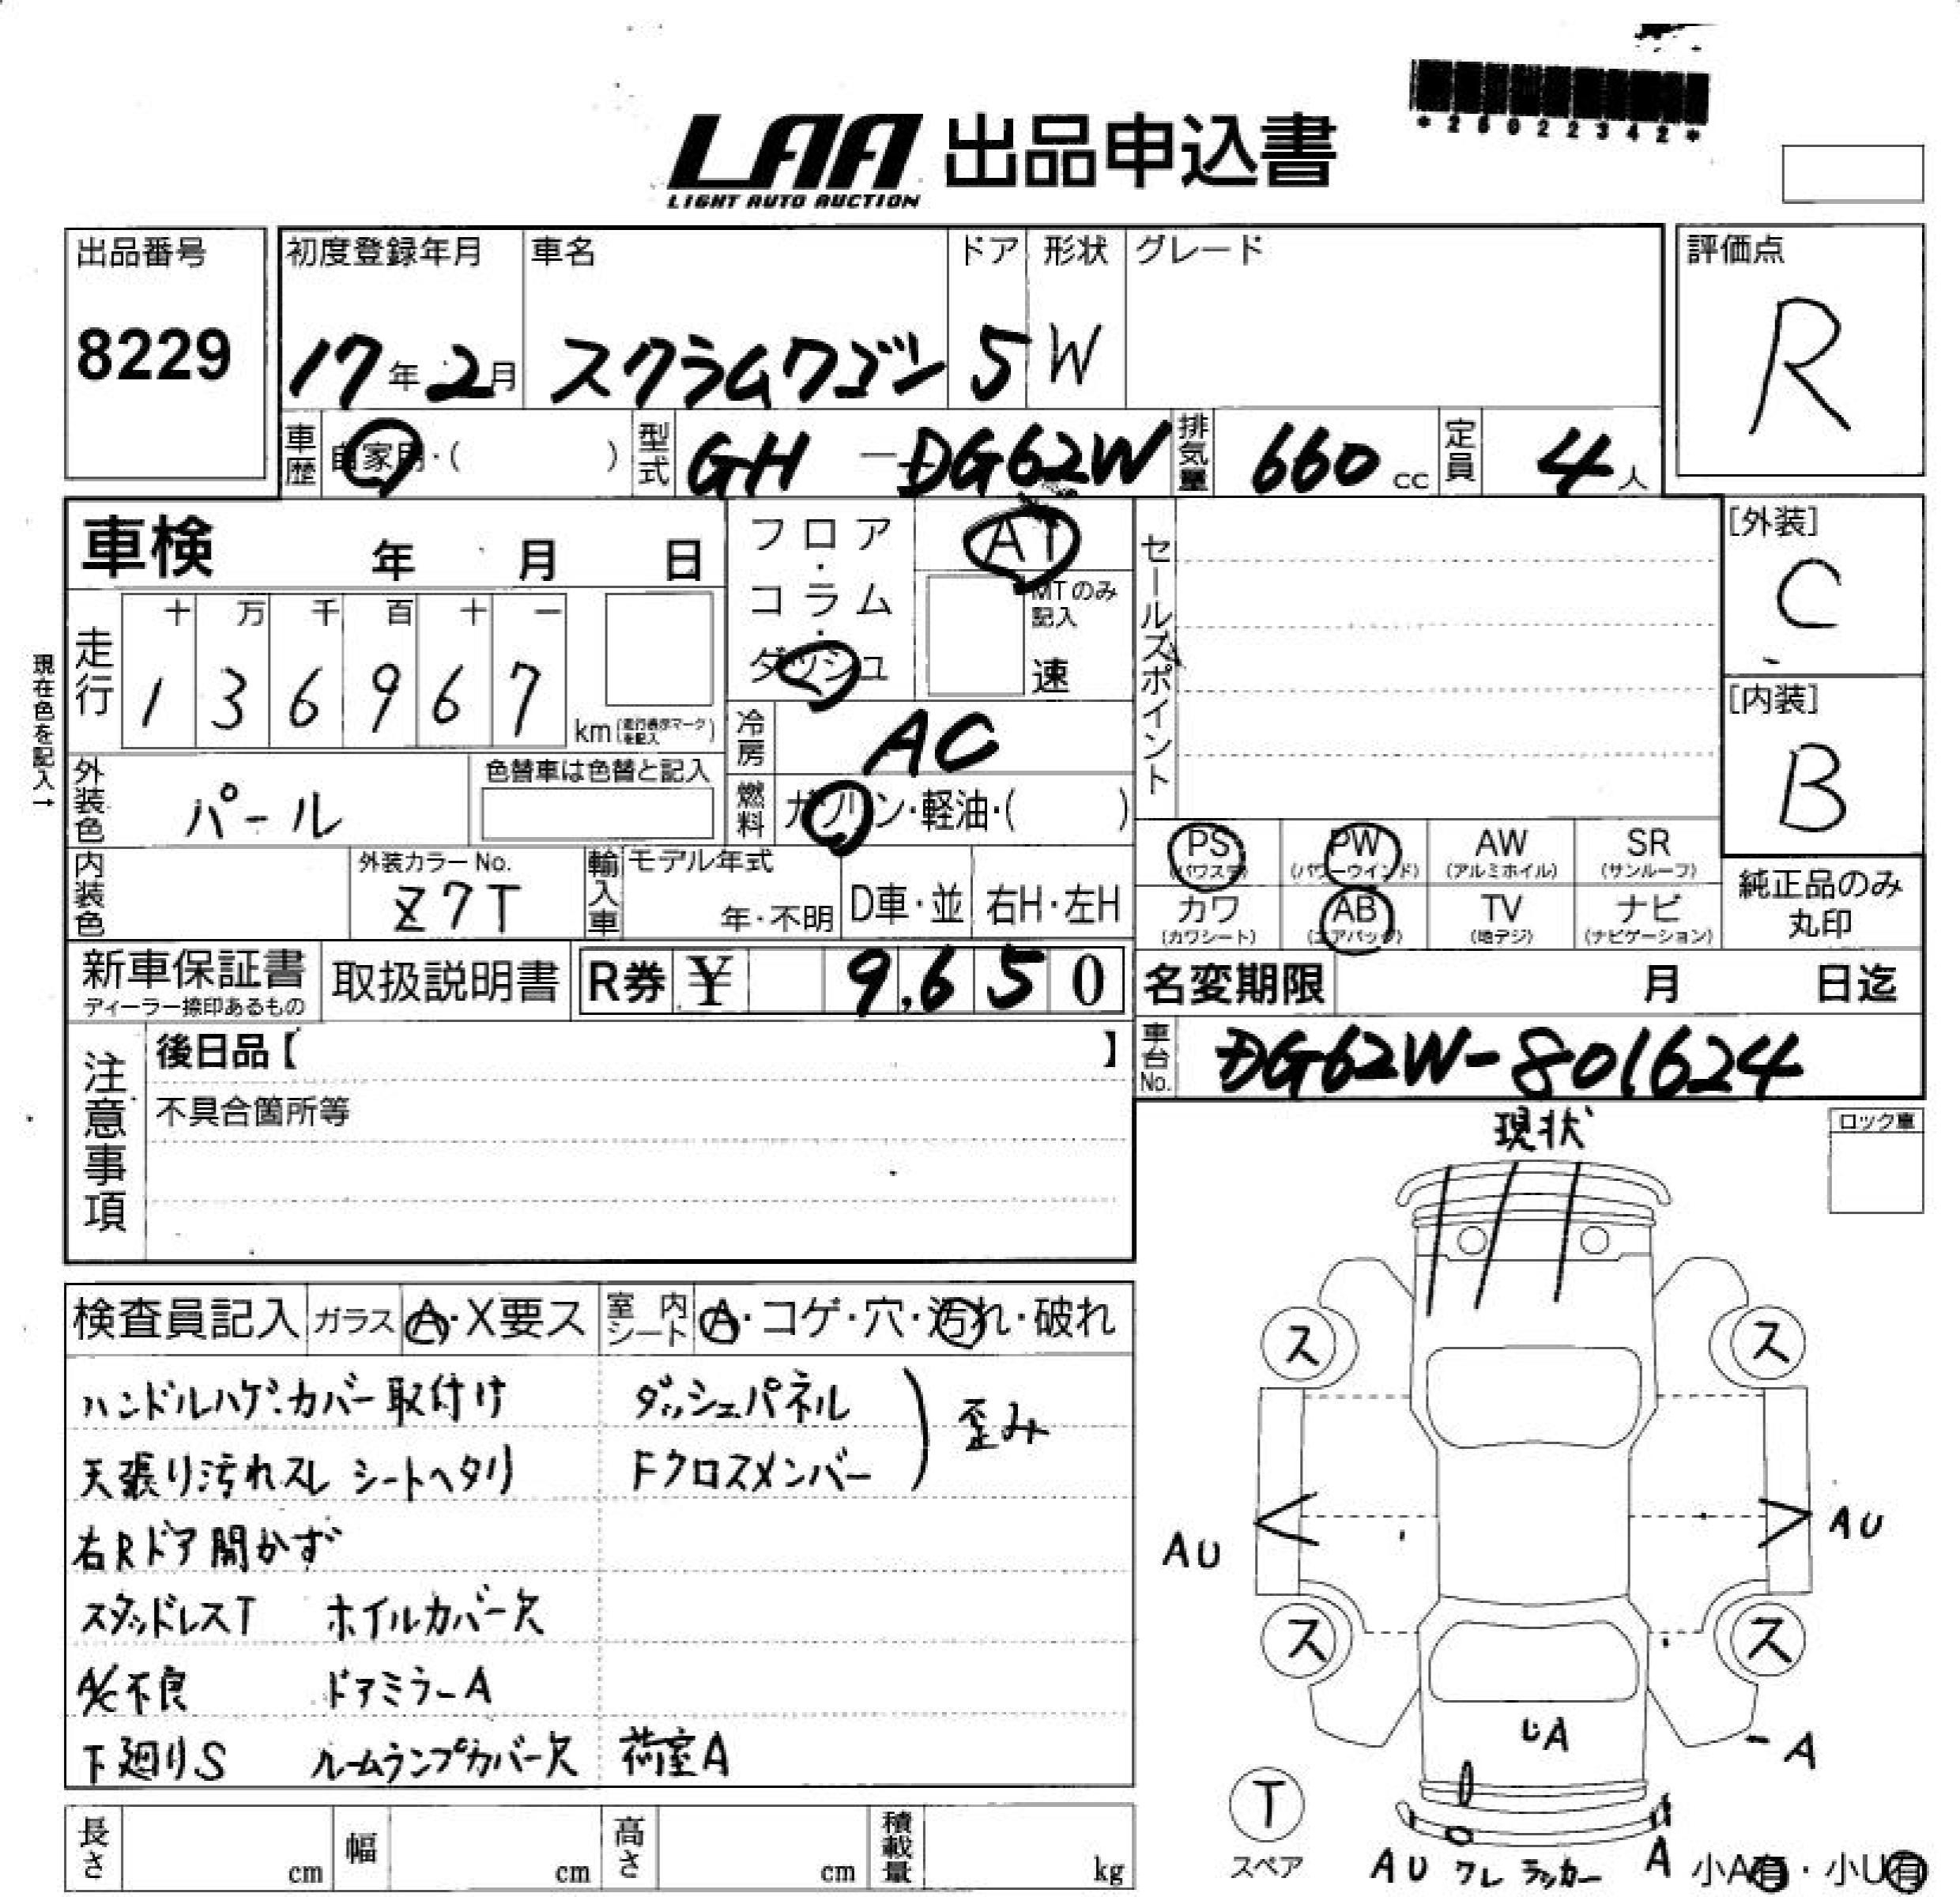 *26022342*
LAA 出品申込書
LIGHT AUTO AUCTION
出品番号 初度登録年月 車名 ドア 形状 グレード 評価点
8229 17年2月 スクラムワゴン 5 W R
車歴 自家用・( ) 型式 GH-DG62W 排気量 660cc 定員 4人
車検 年 月 日 フロア・コラム・ダッシュ AT セールスポイント [外装]
MTのみ記入 速 C
現在色を記入→
走行 十 万 千 百 十 一
1 3 6 9 6 7 km(走行表示マークを記入)
冷房 AC [内装]
外装色 パール 色替車は色替と記入 燃料 ガソリン・軽油・( ) B
PS PW AW SR
(パワステ) (パワーウインド) (アルミホイル) (サンルーフ)
内装色 外装カラーNo. Z7T 輸入車 モデル年式 年・不明 D車・並 右H・左H
カワ AB TV ナビ 純正品のみ
(カワシート) (エアバッグ) (地デジ) (ナビゲーション) 丸印
新車保証書 取扱説明書 R券 ¥ 9,650 名変期限 月 日迄
ディーラー捺印あるもの
注意事項 後日品【 】 車台No. DG62W-801624
不具合箇所等
現状 ロック車
検査員記入 ガラス A・X要ス 室内シート A・コゲ・穴・汚れ・破れ
ハンドルハゲ・カバー取付け ダッシュパネル
天張り汚れスレ シートヘタリ Fクロスメンバー ) 歪み
右Rドア開かず
スタッドレスT ホイルカバー欠
A/C不良 ドアミラーA
下廻りS ルームランプカバー欠 荷室A
ス ス
AU AU
ス ス
UA
A
T
スペア AU ワレ A 小A有・小U有
長さ cm 幅 cm 高さ cm 積載量 kg